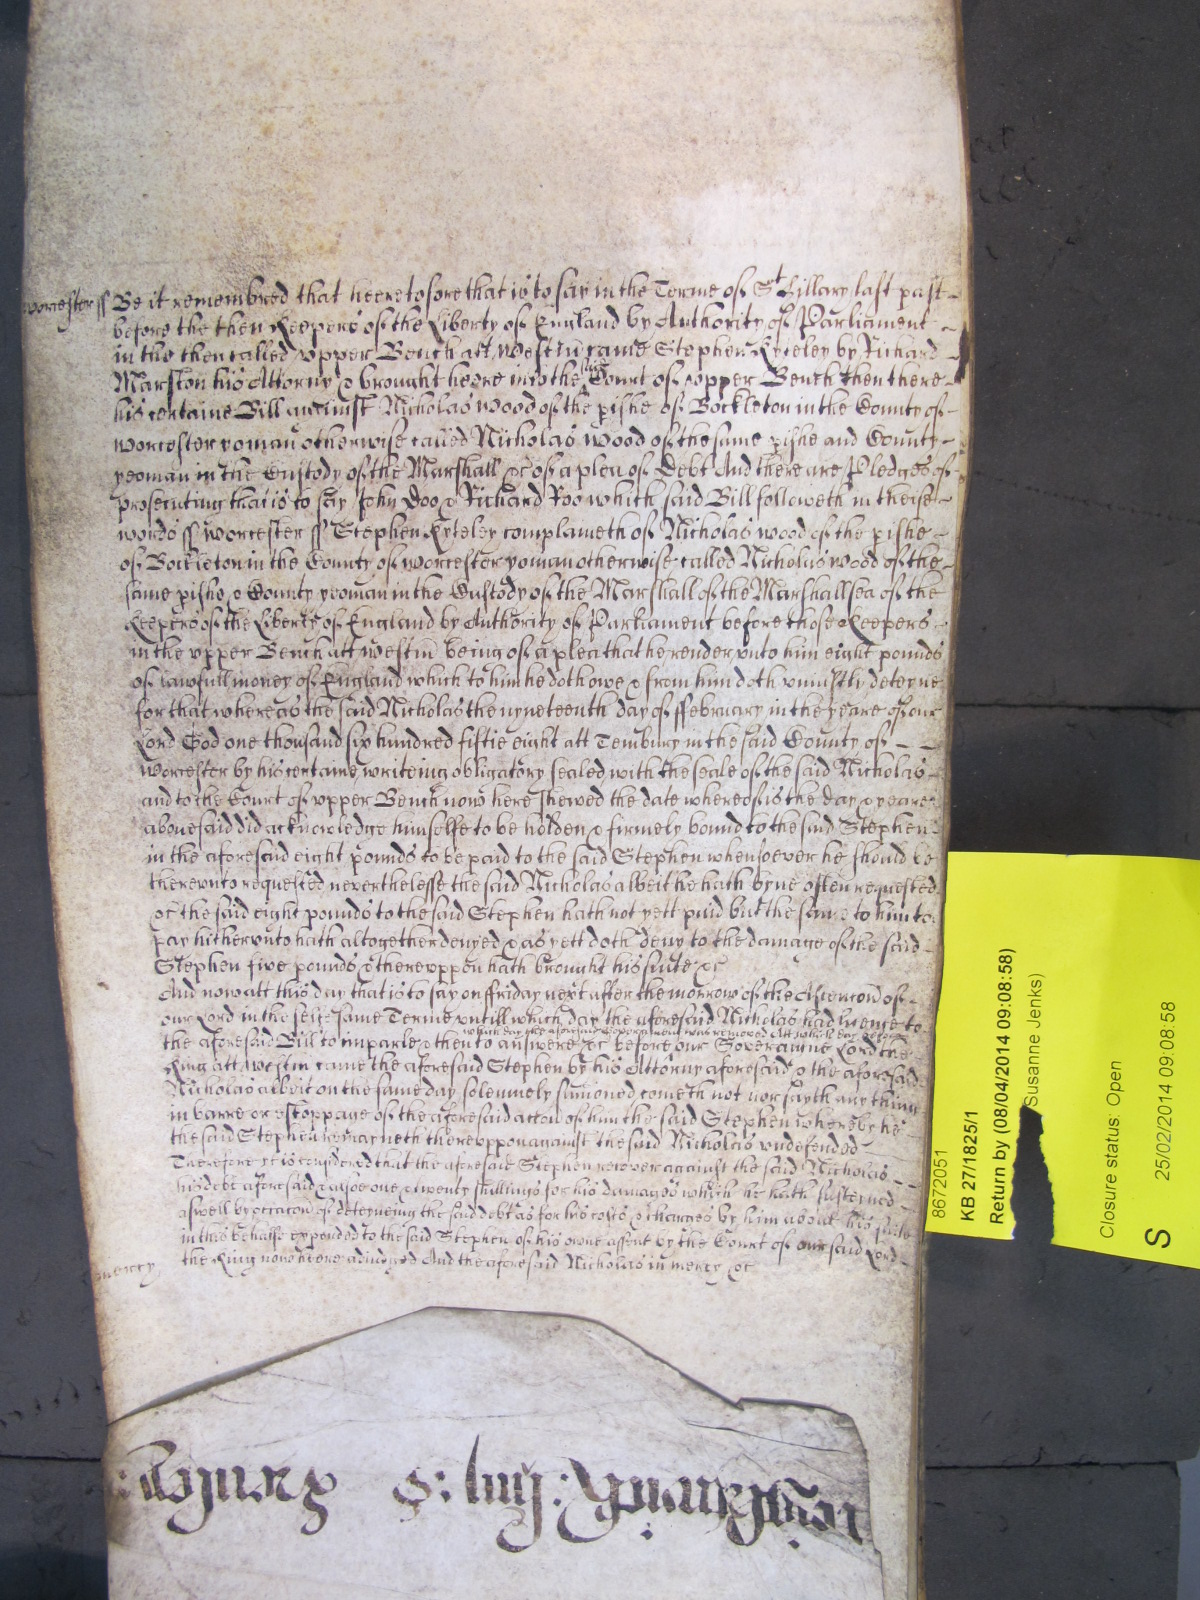 Worcester ss Be it remembred that heeretofore that is to say in the Terme of St Hillary last past
before the then Keepers of the Liberty of England by Authority of Parliament
in the then called upper Bench att Westm came Stephen Kyteley by Richard
Marston his Attorny & brought heere into the said Court of upper Bench then there
his certaine Bill against Nicholas Wood of the pishe of Bockleton in the County of
Worcester yoman otherwise called Nicholas Wood of the same pishe and County
yeoman in the Custody of the Marshall &c of a plea of Debt And there are Pledges of
prosecuting that is to say John Doo & Richard Roo which said Bill followeth in theise
words ss Worcester ss Stephen Kyteley complaineth of Nicholas Wood of the pishe
of Bockleton in the County of Worcester yoman otherwise called Nicholas Wood of the
same pishe & County yeoman in the Custody of the Marshall of the Marshallsea of the
Keepers of the Liberty of England by Authority of Parliament before those Keepers
in the upper Bench att Westm being of a plea that he render unto him eight pounds
of lawfull money of England which to him he doth owe & from him doth uniustly deteyne
for that whereas the said Nicholas the nyneteenth day of ffebruary in the yeare of our
Lord God one thousand six hundred fiftie eight att Tembury in the said County of
Worcester by his certaine writeing obligatory sealed with the seale of the said Nicholas
and to the Court of upper Bench now here shewed the date whereof is the day & yeare
abovesaid did acknowledge himselfe to be holden & firmely bound to the said Stephen
in the aforesaid eight pounds to be paid to the said Stephen whensoever he should be
thereunto requested neverthelesse the said Nicholas albeit he hath byne often requested
&c the said eight pounds to the said Stephen hath not yett paid but the same to him to
pay hitherunto hath altogether denyed & as yett doth deny to the damage of the said
Stephen five pounds & thereuppon hath brought his suite &c
And now att this day that is to say on ffriday next after the morrow of the Ascencion of
our Lord in the selfe same Terme untill which day the aforesaid Nicholas had licence to
the aforesaid Bill to imparle & then to answere &c before our Soveraigne Lord the
King att Westm came the aforesaid Stephen by his Attorny aforesaid & the aforesaid
Nicholas albeit on the same day solemnely sumoned cometh not nor sayth any thing
in barre or estoppage of the aforesaid accon of him the said Stephen whereby he
the said Stephen remayneth thereuppon against the said Nicholas undefended
Therefore it is considered that the aforesaid Stephen recover against the said Nicholas
his debt aforesaid & alsoe one & twenty shillings for his damages which he hath susteyned
aswell by occacon of deteyneing the said debt as for his costs & charges by him about his suite
in this behalfe expended to the said Stephen of his owne assent by the Court of our said Lord
the King now heere adiudged And the aforesaid Nicholas in mercy &c
mercy
8672051
KB 27/1825/1
Return by (08/04/2014 09:08:58)
Susanne Jenks)
Closure status: Open
S
25/02/2014 09:08:58